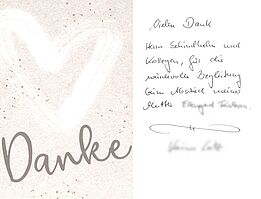 Danke
Vielen Dank
Herr Schindhelm und
Kollegen, für die
würdevolle Begleitung
beim Abschied meiner
Mutter